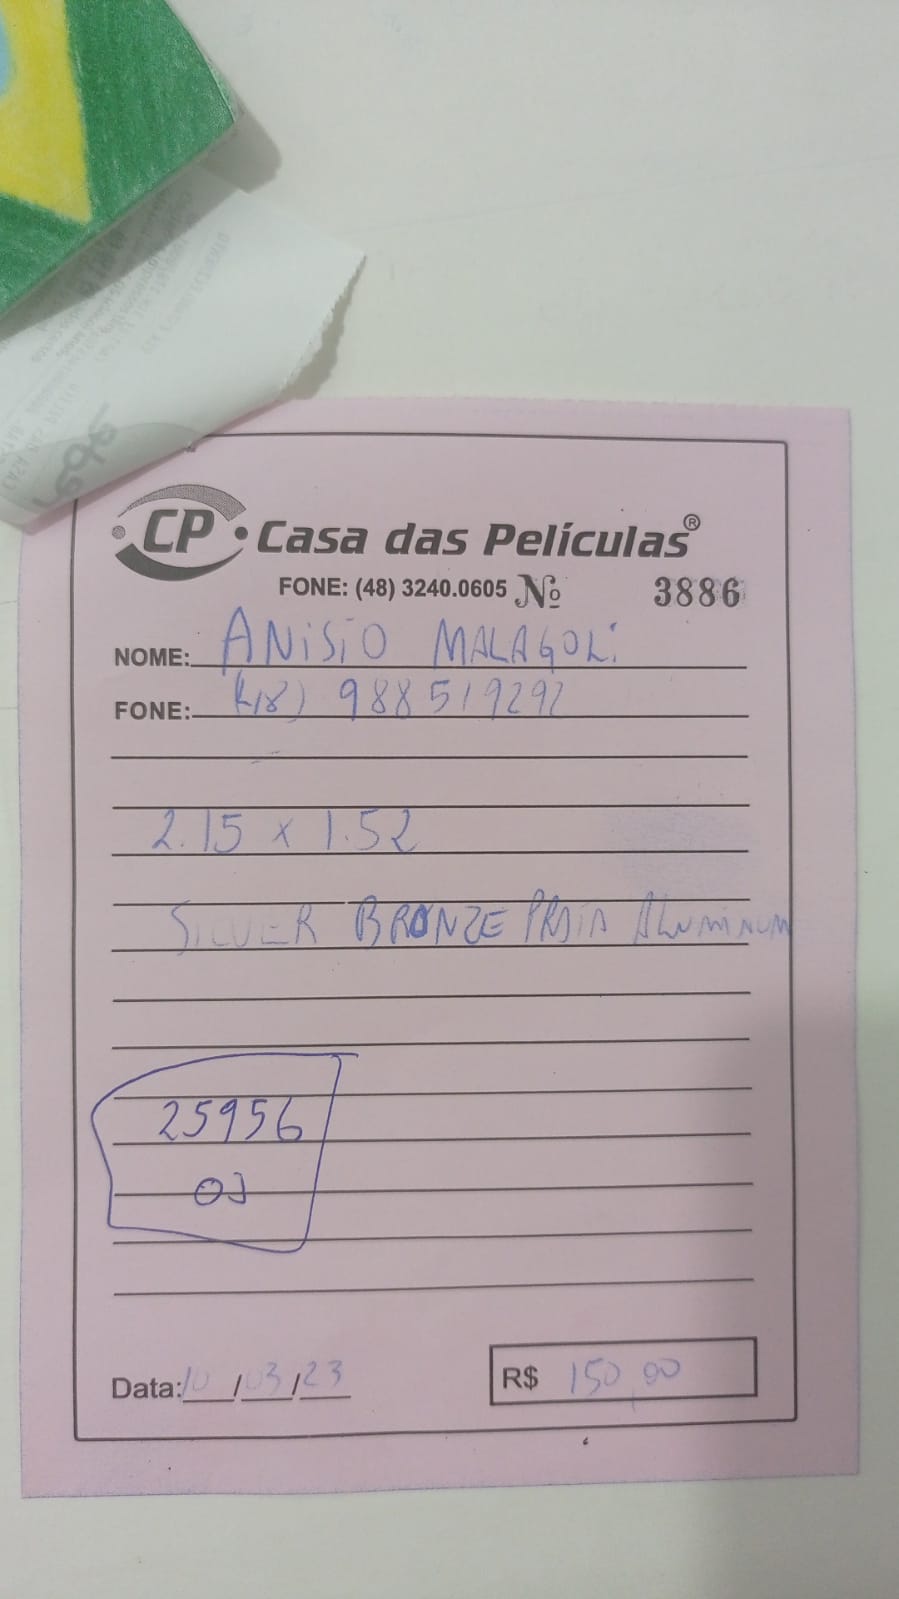 CP Casa das Películas®
FONE: (48) 3240.0605 Nº 3886
NOME: ANiSiO MALAGOLi
FONE: (48) 988519292
2.15 x 1.52
SILVER BRONZE PRATA ALUMINUM
25956
03
Data: 10/03/23
R$ 150,00